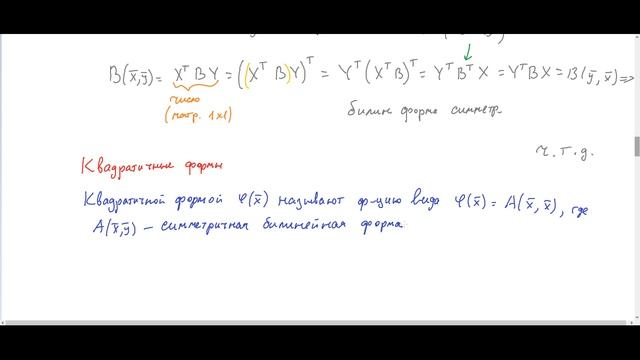 B(x̄,ȳ) = XᵀBY = ((XᵀB)Y)ᵀ = Yᵀ(XᵀB)ᵀ = YᵀBᵀX = YᵀBX = B(ȳ,x̄) ⟹
число
(матр. 1x1)
билин форма симметр
ч.т.д.
Квадратичные формы
Квадратичной формой φ(x̄) называют ф-цию вида φ(x̄) = A(x̄,x̄), где
A(x̄,ȳ) – симметричная билинейная форма